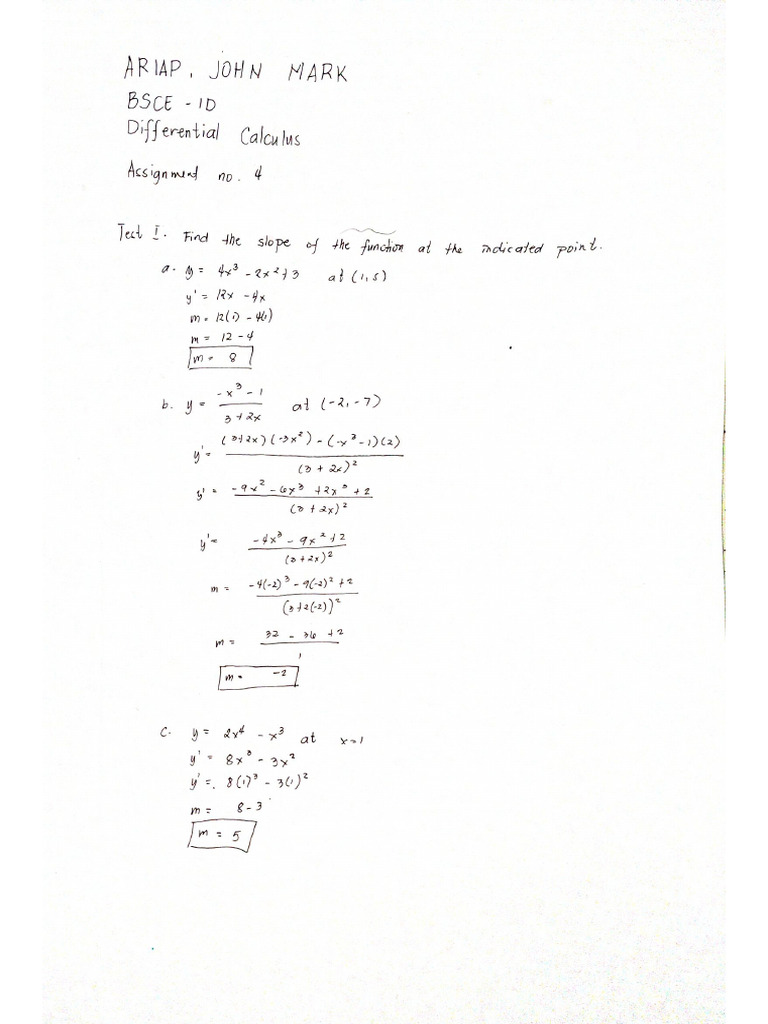 ARIAP, JOHN MARK
BSCE - 1D
Differential Calculus
Assignment no. 4
Test I. Find the slope of the function at the indicated point.
a. y = 4x³ - 2x² + 3 at (1, 5)
y' = 12x - 4x
m = 12(1) - 4(1)
m = 12 - 4
m = 8
b. y = (-x³ - 1) / (3 + 2x) at (-2, -7)
y' = ((3+2x)(-3x²) - (-x³-1)(2)) / (3 + 2x)²
y' = (-9x² - 6x³ + 2x³ + 2) / (3 + 2x)²
y' = (-4x³ - 9x² + 2) / (3 + 2x)²
m = (-4(-2)³ - 9(-2)² + 2) / (3+2(-2))²
m = (32 - 36 + 2) / 1
m = -2
c. y = 2x⁴ - x³ at x=1
y' = 8x³ - 3x²
y' = 8(1)³ - 3(1)²
m = 8-3
m = 5